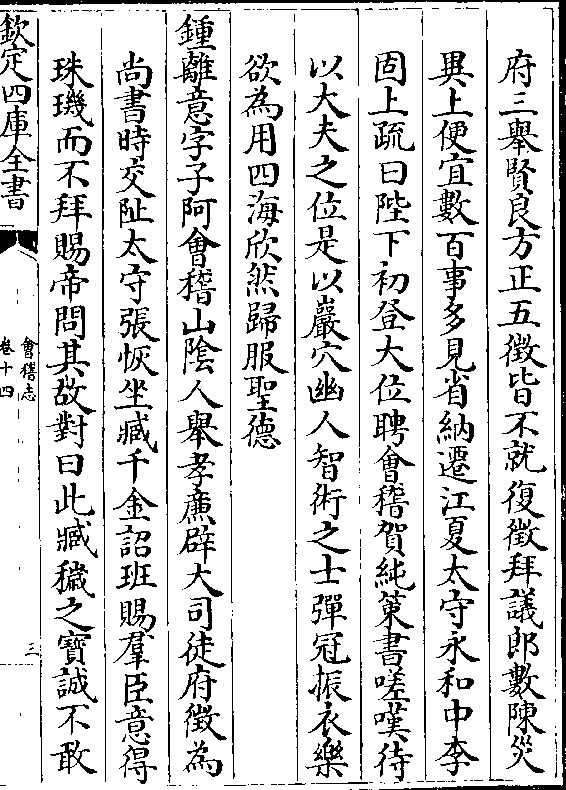 府三舉賢良方正五徵皆不就復徵拜議郎數陳災
異上便宜數百事多見省納遷江夏太守永和中李
固上疏曰陛下初登大位聘會稽賀純策書嗟嘆待
以大夫之位是以巖穴幽人智術之士彈冠振衣樂
欲為用四海欣然歸服聖德
鍾離意字子阿會稽山陰人舉孝㢘辟大司徒府徵為
尚書時交阯太守張恢坐臧千金詔班賜羣臣意得
珠璣而不拜賜帝問其故對曰此臧穢之寶誠不敢
欽定四庫全書
會稽志
卷十四
三